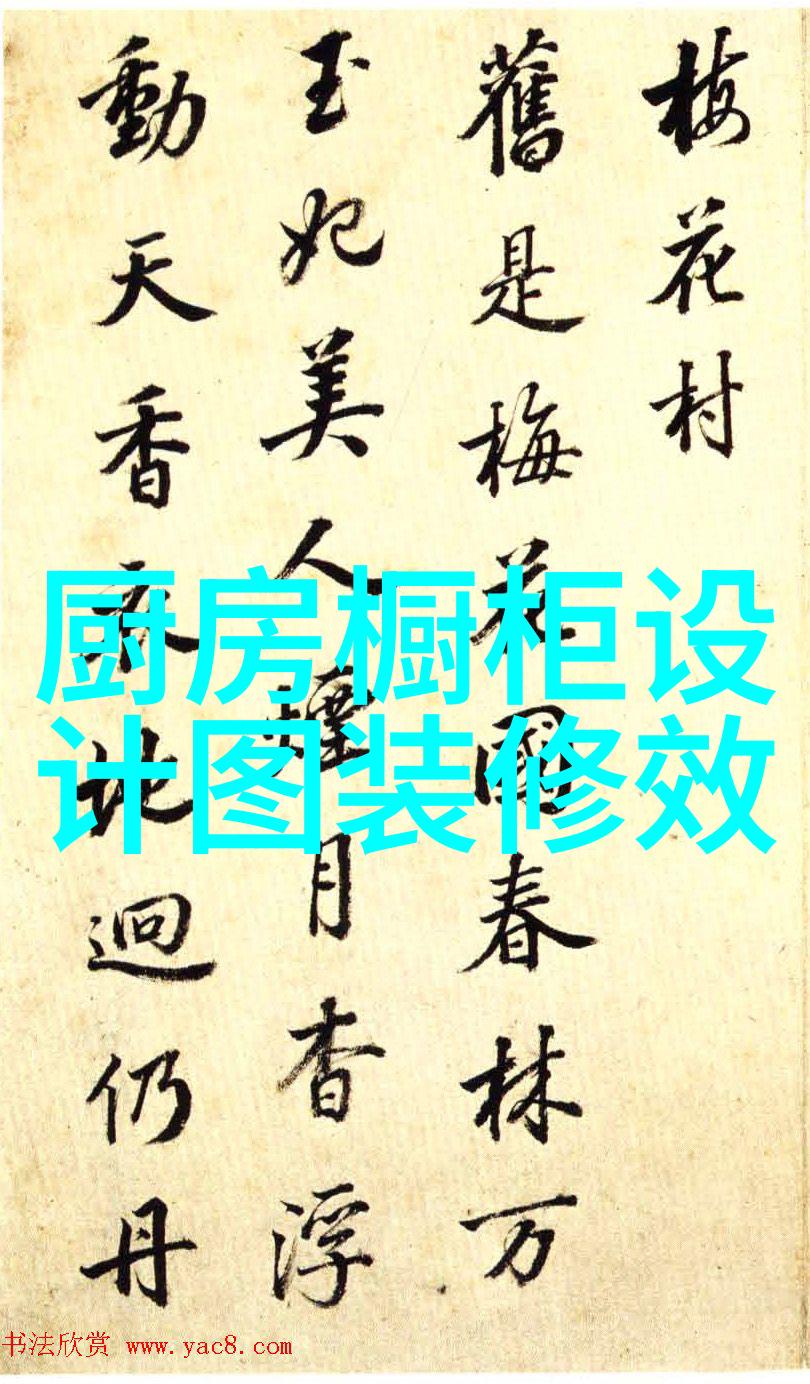 梅花村
舊是梅花國春林万
玉妃美人煙月杳浮
動天香衣地迥仍丹
厨房橱柜设
计图装修效
书法欣赏 www.yac8.com